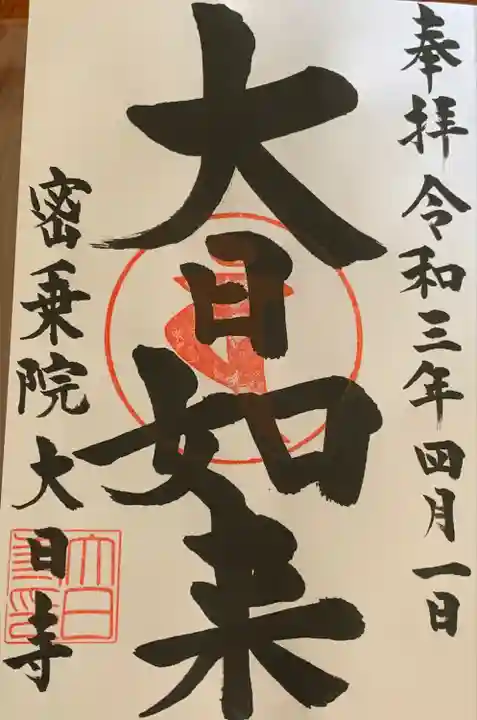 奉拝 令和三年四月一日
大日如来
密乗院 大日寺